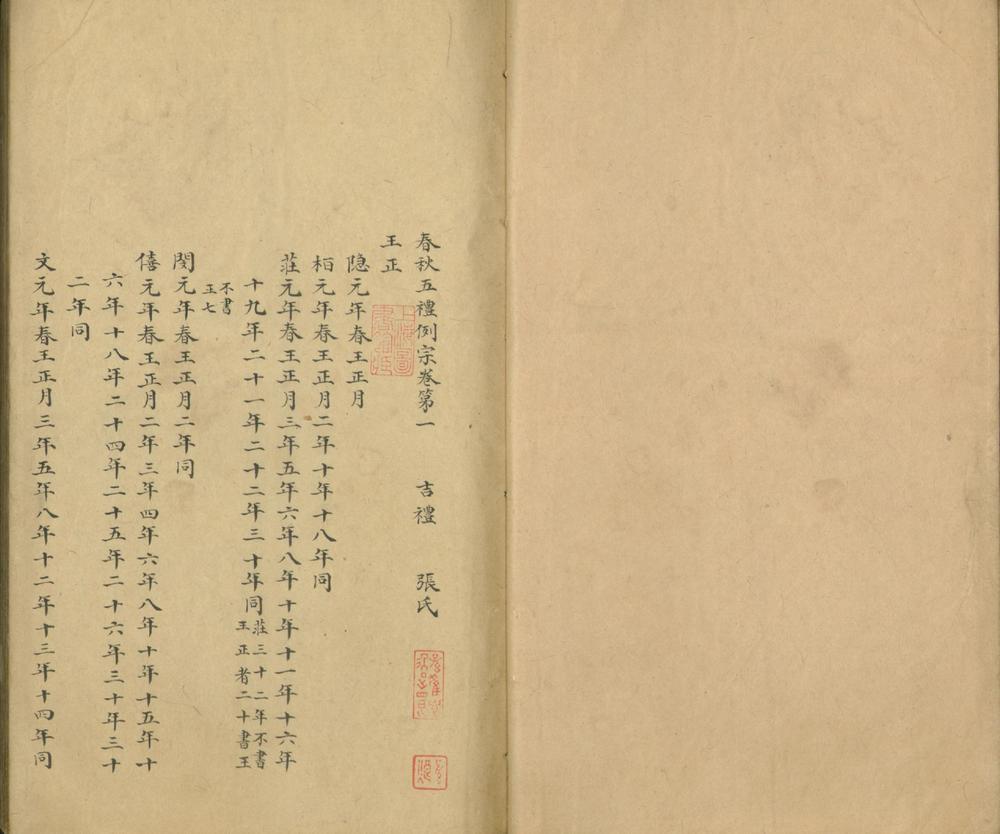 春秋五禮例宗卷第一 吉禮 張氏
王正
上海圖書館藏
隐元年春王正月
桓元年春王正月二年十年十八年同
莊元年春王正月三年五年六年八年十年十一年十六年
十九年二十一年二十二年三十年同
莊三十二年不書
王正者二十書王
不書
王七
閔元年春王正月二年同
僖元年春王正月二年三年四年六年八年十年十五年十
六年十八年二十四年二十五年二十六年三十年三十
二年同
文元年春王正月三年五年八年十二年十三年十四年同